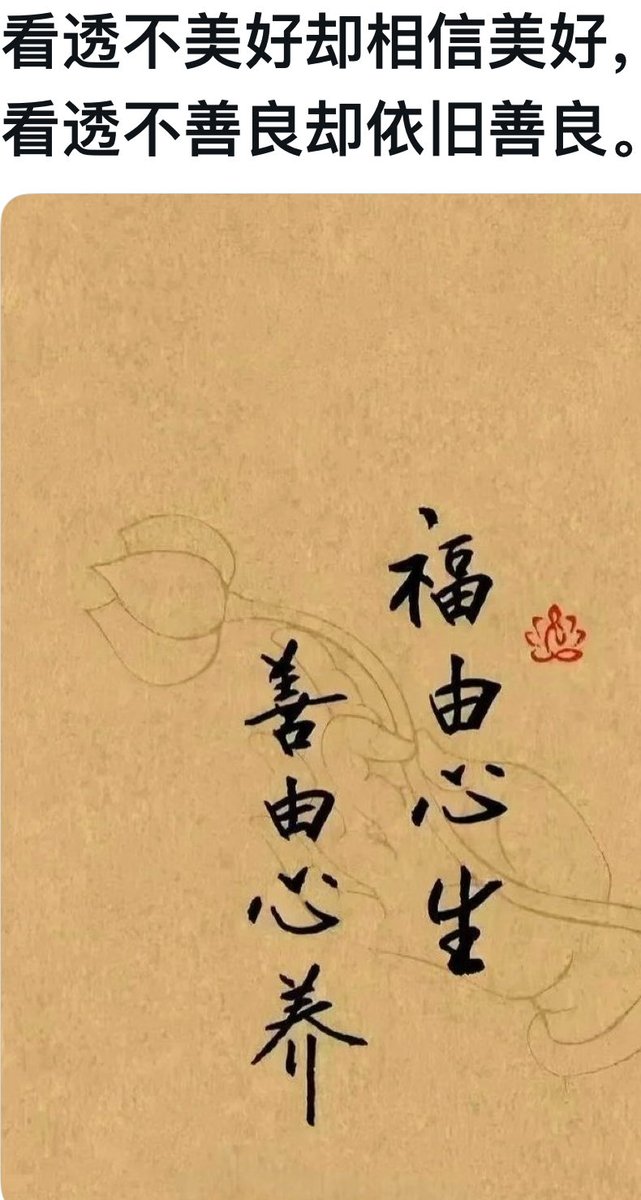 看透不美好却相信美好，
看透不善良却依旧善良。
福由心生
善由心养